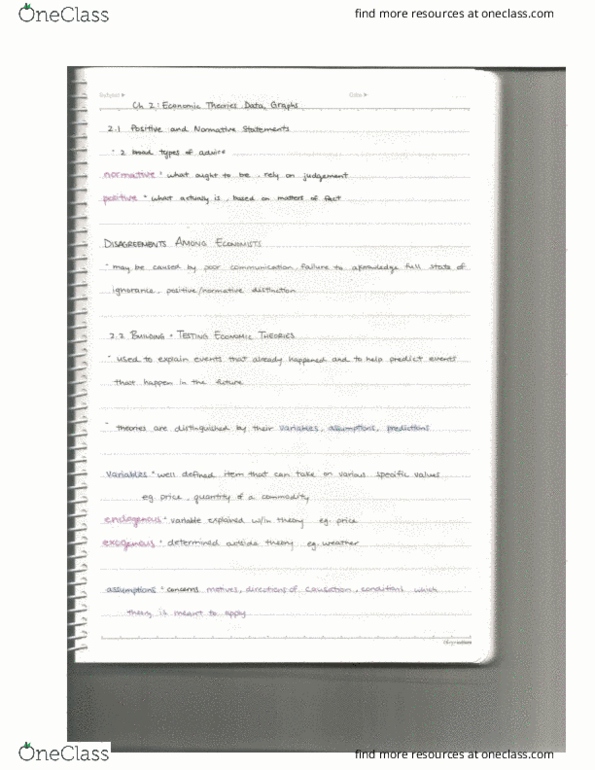 OneClass
find more resources at oneclass.com
Subject
Date
Ch 2: Economic Theories Data, Graphs
2.1 Positive and Normative Statements
• 2 broad types of advice
normative • what ought to be, rely on judgement
positive • what actually is, based on matters of fact
DISAGREEMENTS AMONG ECONOMISTS
• may be caused by poor communication, failure to aknowledge full state of
ignorance, positive/normative distinction
2.2 BUILDING + TESTING ECONOMIC THEORIES
• used to explain events that already happened and to help predict events
that happen in the future
• theories are distinguished by their variables, assumptions, predictions
variables • well defined item that can take on various specific values
eg. price, quantity of a commodity
endogenous • variable explained w/in theory eg. price
exogenous • determined outside theory eg. weather
assumptions • concerns motives, directions of causation, conditions which
theory is meant to apply
OneClass
find more resources at oneclass.com